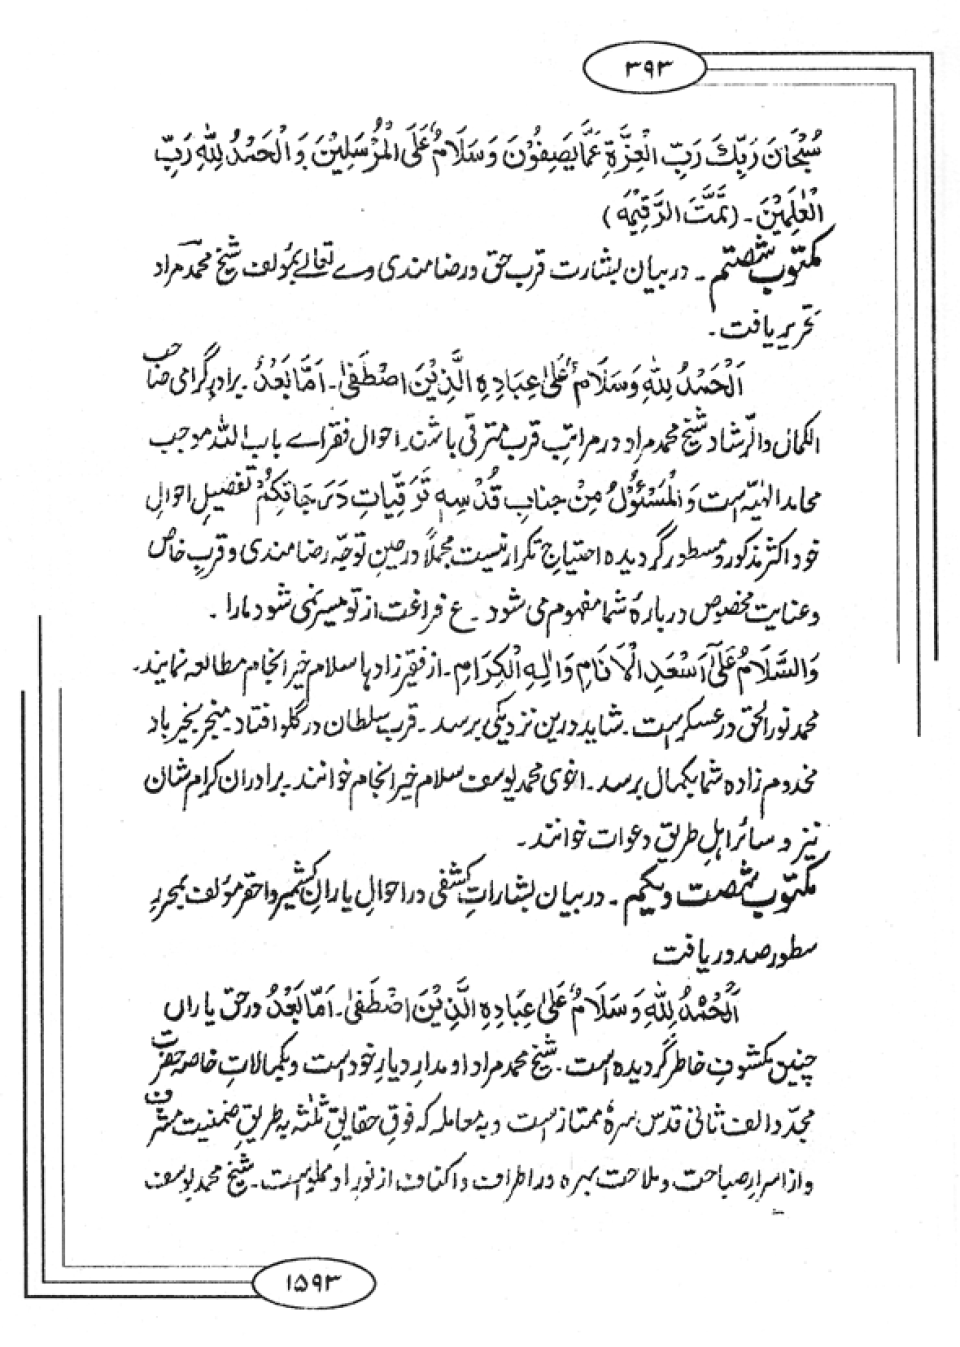 ۳۹۳
سُبْحَانَ رَبِّكَ رَبِّ الْعِزَّةِ عَمَّا يَصِفُوْنَ وَسَلَامٌ عَلَى الْمُرْسَلِيْنَ وَالْحَمْدُ لِلّٰهِ رَبِّ
الْعٰلَمِيْنَ ۔ (تَمَّتَ الرَّقِيْمَه)
مکتوب شصتم ۔ در بیان بشارت قرب حق و رضامندی وے تعالےٰ بمؤلف شیخ محمد مراد
تحریر یافت ۔
اَلْحَمْدُ لِلّٰهِ وَسَلَامٌ عَلىٰ عِبَادِهِ الَّذِيْنَ اصْطَفىٰ ۔ اَمَّا بَعْدُ ۔ برادر گرامی صاحب
الکمال والرشاد شیخ محمد مراد در مراتبِ قرب مترقی باشند ۔ احوال فقراے باب اللہ موجب
محامد الٰہیہ است وَالْمَسْئُوْلُ مِنْ جنابِ قُدْسِهٖ تَرَقِّیَاتِ دَرَجَاتِکُمْ تفصیلِ احوالِ
خود اکثر مذکور و مسطور گردیدہ احتیاجِ تکرار نیست مجملاً در حینِ توجّہ رضامندی و قربِ خاص
و عنایت مخصوص دربارۂ شما مفہوم می شود ۔ ع فراغت از تو میسر نمی شود مارا ۔
وَالسَّلَامُ عَلىٰ اَسْعَدِ الْاَنَامِ وَاٰلِهِ الْكِرَامِ ۔ از فقیر زادہا سلام خیر انجام مطالعہ نمایند ۔
محمد نور الحق در عسکر است ۔ شاید درین نزدیکی برسد ۔ قرب سلطان در گلو افتاد ۔ منجر بخیر باد
مخدوم زادہ شما بکمال برسد ۔ اخوی محمد یوسف سلام خیر انجام خوانند ۔ برادران کرام شان
نیز و سائر اہلِ طریق دعوات خوانند ۔
مکتوب شصت و یکم ۔ در بیان بشاراتِ کشفی در احوالِ یارانِ کشمیر و احقر مؤلف بمحررِ
سطور صدور یافت
اَلْحَمْدُ لِلّٰهِ وَسَلَامٌ عَلىٰ عِبَادِهِ الَّذِيْنَ اصْطَفىٰ ۔ اَمَّا بَعْدُ در حق یاراں
چنیں مکشوفِ خاطر گردیدہ است ۔ شیخ محمد مراد او مدارِ دیارِ خود است و بکمالاتِ خاصہ حضرت
مجدّد الف ثانی قدس سرہٗ ممتاز است و بہ معاملہ کہ فوقِ حقایقِ ثلٰثہ بہ طریقِ ضمنیت مشرف
و از اسرارِ صباحت و ملاحت بہرہ ور اطراف و اکناف از نورِ او مملو است ۔ شیخ محمد یوسف
۱۵۹۳